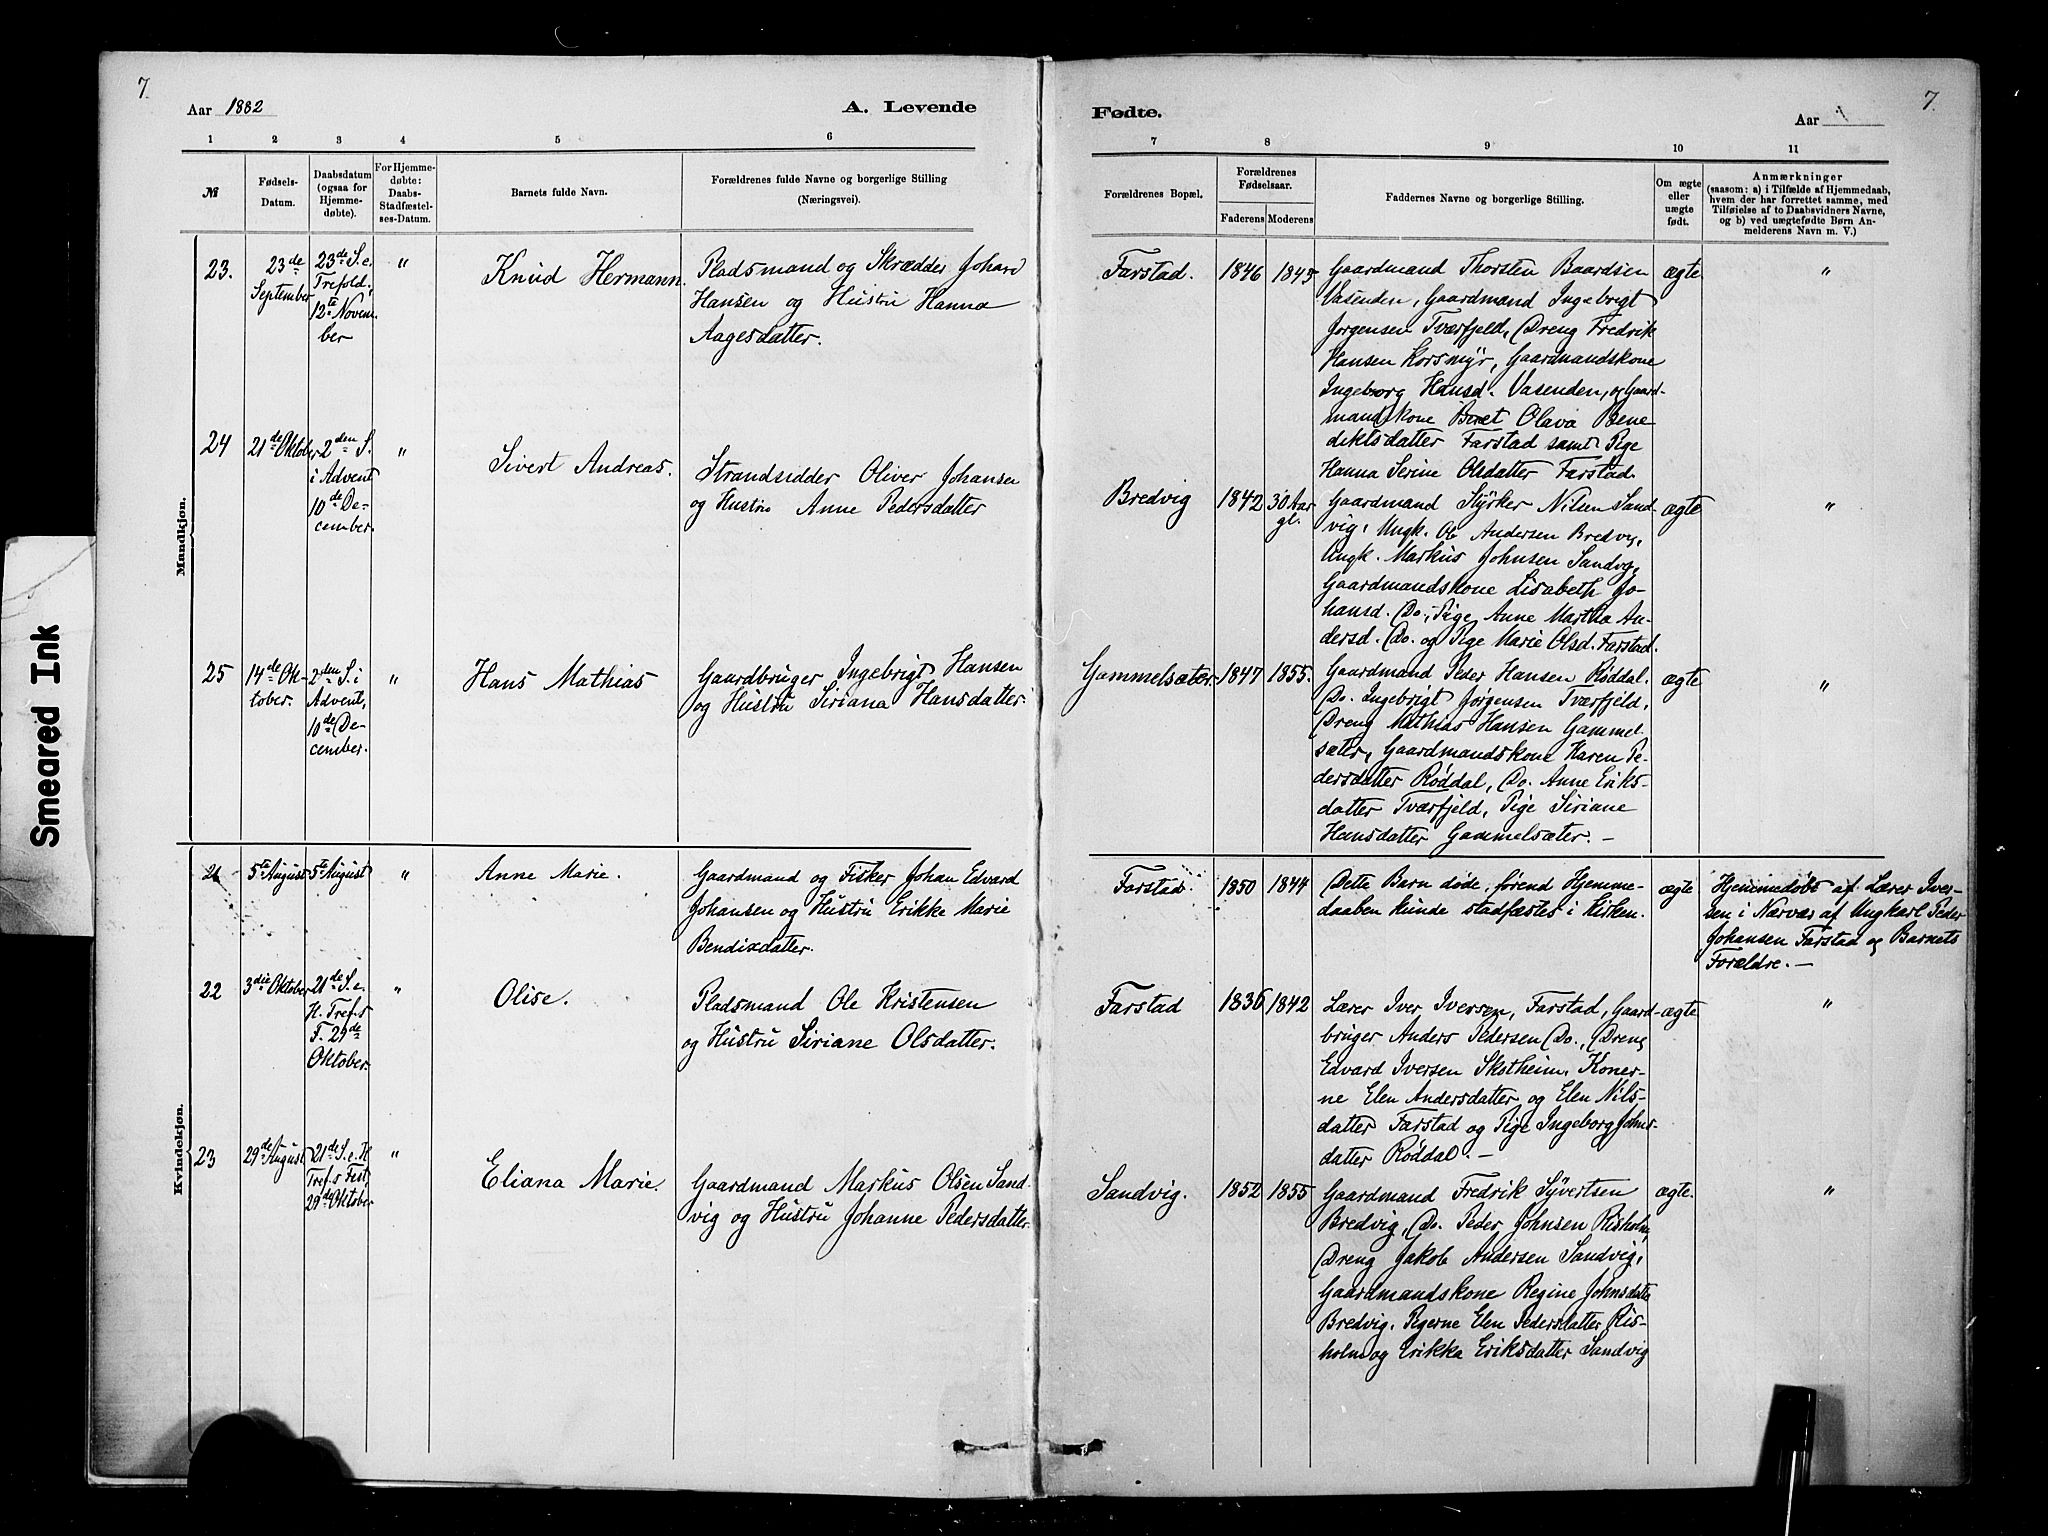 7.
Aar 1882
A. Levende
1 2 3 4 5 6
№
Fødsels-
Datum.
Daabsdatum
(ogsaa for
Hjemme-
døbte).
For Hjemme-
døbte:
Daabs-
Stadfæstel-
ses-Datum.
Barnets fulde Navn.
Forældrenes fulde Navne og borgerlige Stilling
(Næringsvei).
Mandkjøn.
23.
23de
September
23de S. e.
Trefold.,
12te Novem-
ber
"
Knud Hermann.
Pladsmand og Skrædder Johan
Hansen og Hustru Hanna
Aagesdatter.
24
21de Oktober
2den S.
i Advent
10de De-
cember.
"
Sivert Andreas.
Strandsidder Oliver Johansen
og Hustru Anne Pedersdatter
25
14de Ok-
tober.
2den S. i
Advent,
10de De-
cember.
"
Hans Mathias
Gaardbruger Ingebrigt Hansen
og Hustru Siriana Hansdatter.
Kvindekjøn.
21
5te August
5te August
"
Anne Marie.
Gaardmand og Fisker Johan Edvard
Johansen og Hustru Erikke Marie
Bendixdatter.
22
3die Oktober
21de S. e.
H. Tref.s
F. 29de
Oktober.
"
Olise.
Pladsmand Ole Kristensen
og Hustru Siriane Olsdatter.
23
29de August
21de S. e. H
Tref.s Fest,
29de Oktober
"
Eliana Marie.
Gaardmand Markus Olsen Sand-
vig og Hustru Johanne Pedersdatter.
Smeared Ink
Fødte.
Aar
7.
7 8 9 10 11
Forældrenes Bopæl.
Forældrenes
Fødselsaar.
Faderens Moderens
Faddernes Navne og borgerlige Stilling.
Om ægte
eller
uægte
født.
Anmærkninger
(saasom: a) i Tilfælde af Hjemmedaab,
hvem der har forrettet samme, med
Tilføielse af to Daabsvidners Navne,
og b) ved uægtefødte Børn An-
melderens Navn m. V.)
Farstad. 1846 1843
Gaardmand Thorsten Baardsen
Vasenden, Gaardmand Ingebrigt
Jørgensen Tværfjeld, Dreng Fredrik
Hansen Korsmyr, Gaardmandskone
Ingeborg Hansd. Vasenden, og Gaard-
mandskone Beret Olava Bene
diktsdatter Farstad samt Pige
Hanna Serine Olsdatter Farstad.
ægte
"
Bredvig 1842 30 Aar
gl.
Gaardmand Styrker Nilsen Sand-
vig, Ungk. Ole Andersen Bredvig,
Ungk. Markus Johnsen Sandvig,
Gaardmandskone Lisabeth Jo-
hansd. Do., Pige Anne Martha An-
dersd. Do. og Pige Marie Olsd. Farstad.
ægte
"
Gammelsæter. 1847 1855.
Gaardmand Peder Hansen Røddal.
Do. Ingebrigt Jørgensen Tværfjeld,
Dreng Mathias Hansen Gammel
sæter, Gaardmandskone Karen Pe-
dersdatter Røddal, Do. Anne Eriks-
datter Tværfjeld, Pige Siriane
Hansdatter Gammelsæter. –
ægte
"
Farstad. 1850 1844
Dette Barn døde, førend Hjemme-
daaben kunde stadfæstes i Kirken.
ægte
Hjemmedøbt af Lærer Iver-
sen i Nærvær af Ungkarl Peder
Johansen Farstad og Barnets
Forældre. –
Farstad 1836 1842
Lærer Iver Iversen, Farstad, Gaard-
bruger Anders Pedersen Do., Dreng
Edvard Iversen Skotheim, Koner-
ne Elen Andersdatter og Elen Nils-
datter Farstad og Pige Ingeborg Johns-
datter Røddal. –
ægte
"
Sandvig. 1852 1855
Gaardmand Fredrik Syvertsen
Bredvig, Do. Peder Johnsen Risholm,
Dreng Jakob Andersen Sandvig,
Gaardmandskone Regine Johnsdatter
Bredvig, Pigerne Elen Pedersdatter Ris-
holm og Erikka Eriksdatter Sandvig
ægte.
"